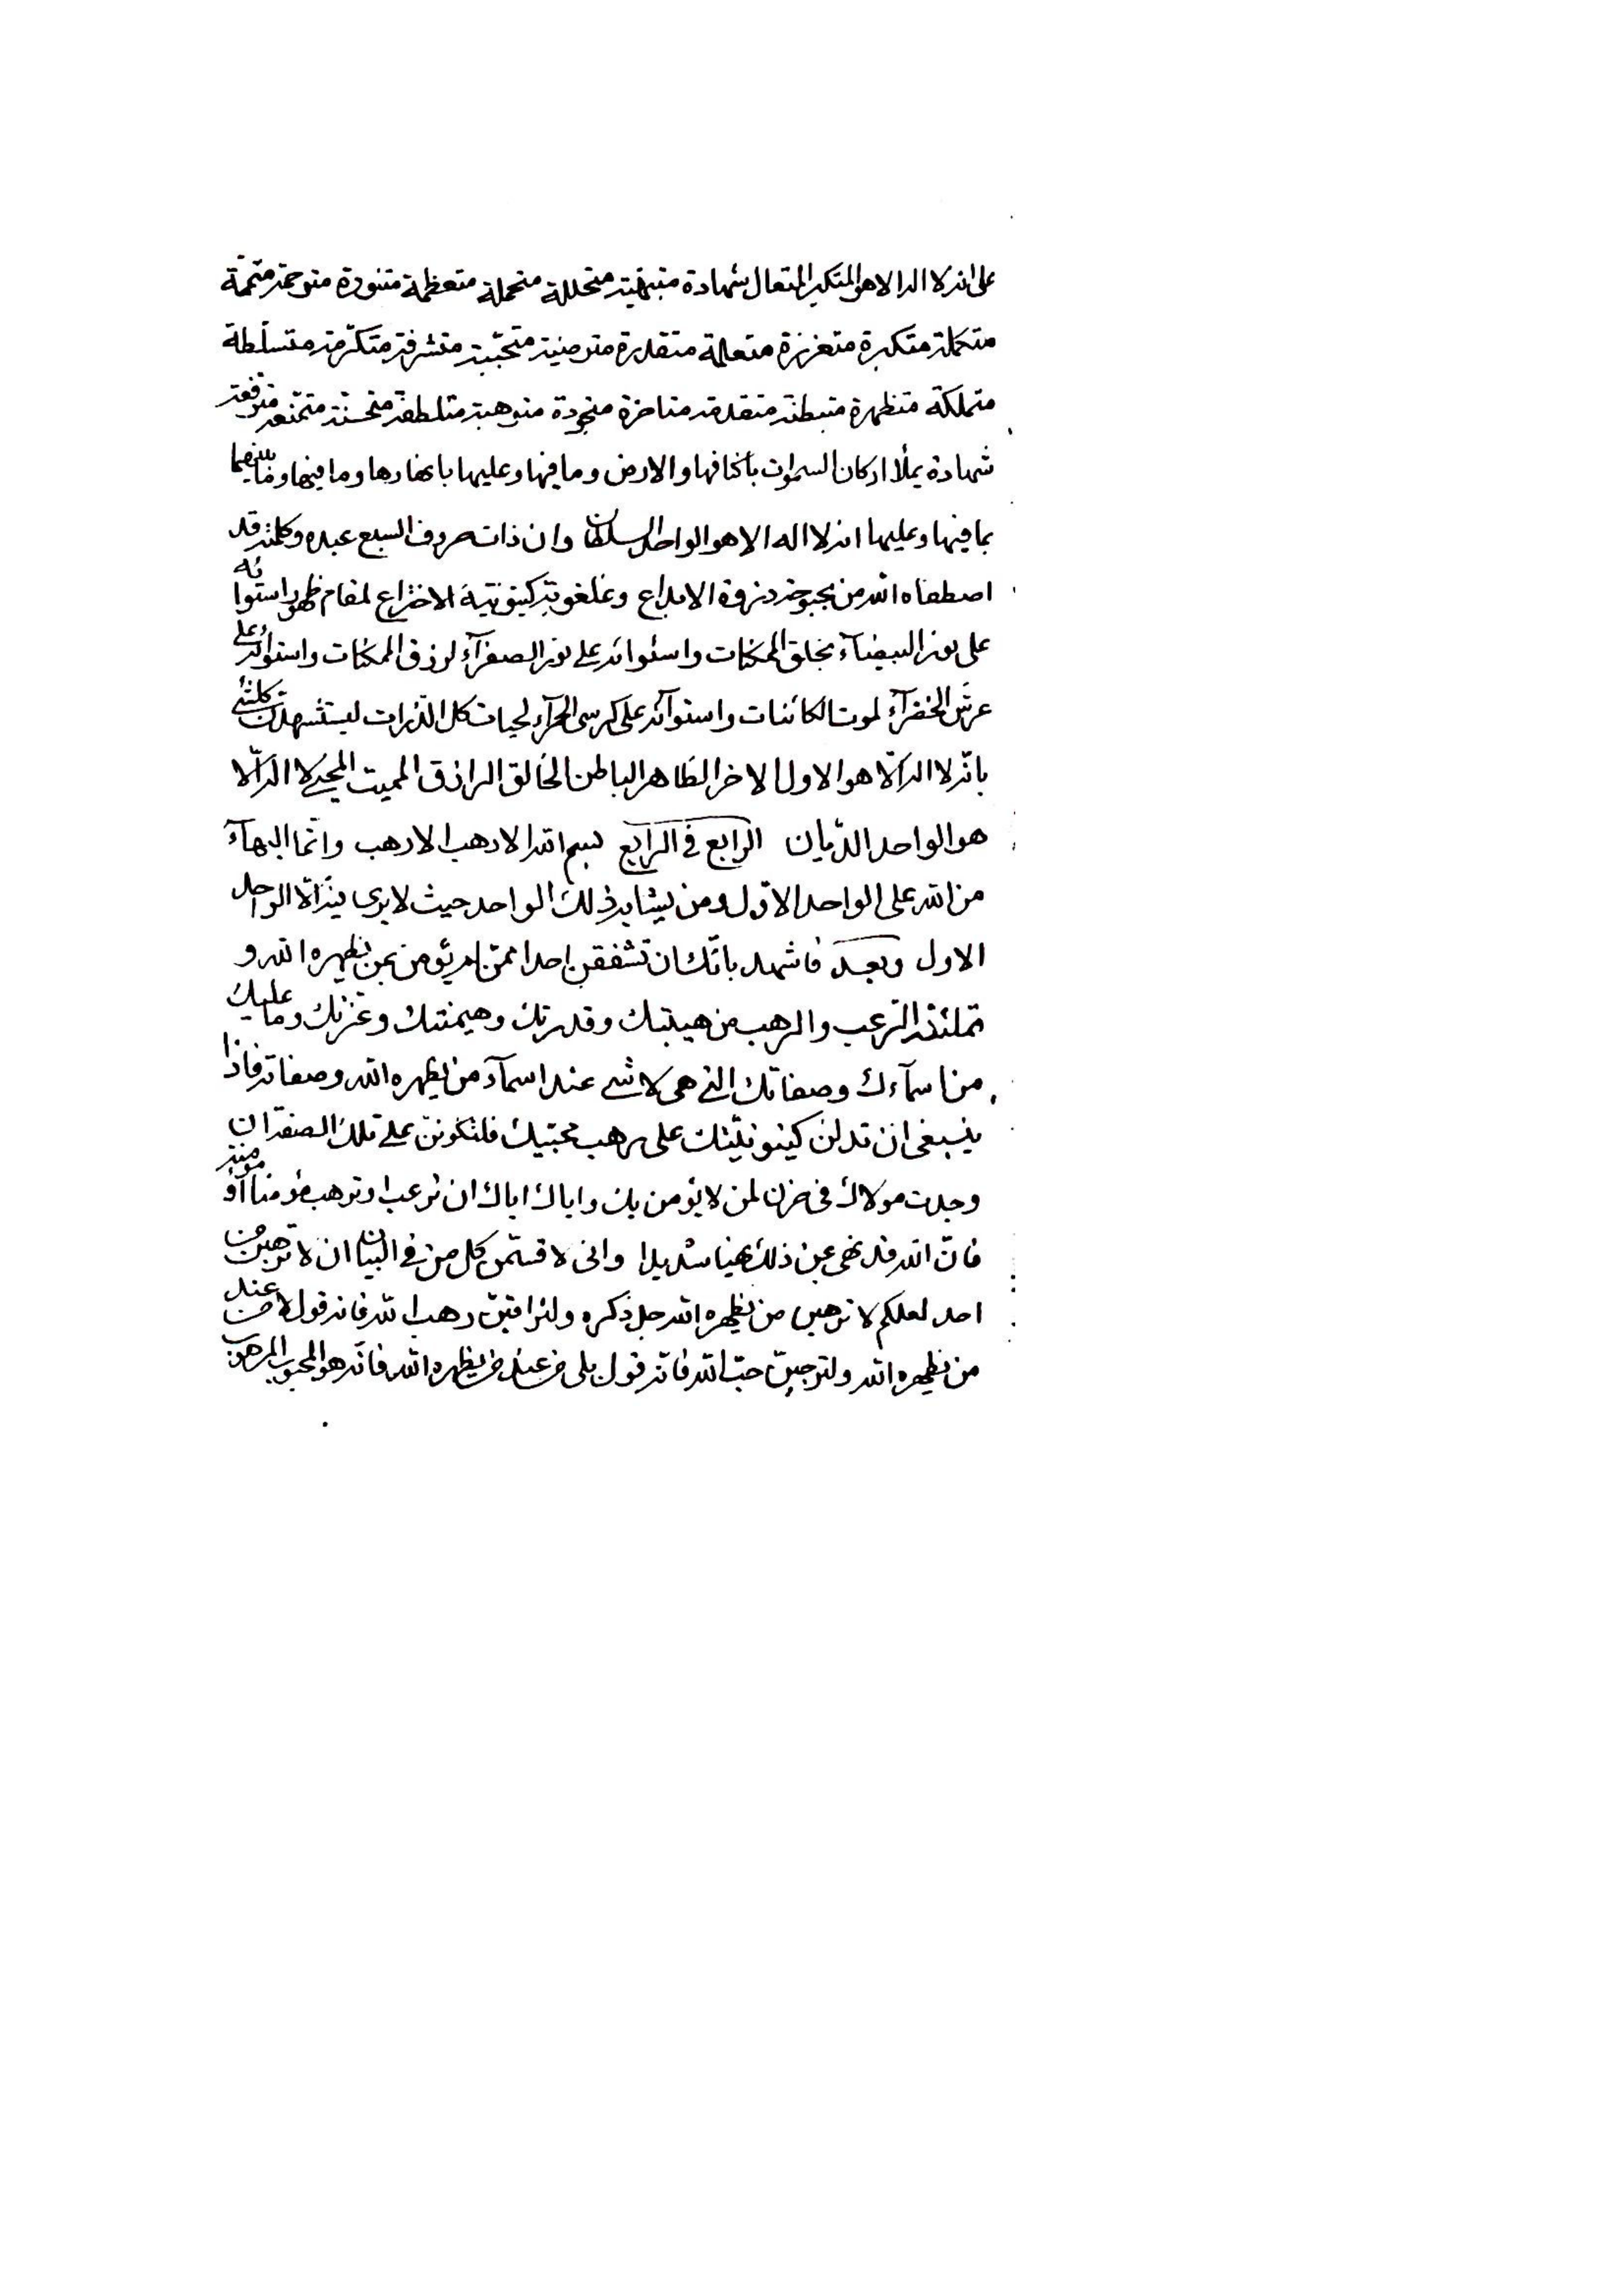 على انه لا اله الا هو المتكبر المتعال شهادة متبهية متجللة متجملة متعظمة متنورة مترحمة متتممة
متكملة متكبرة متعززة متعلمة متقدرة مترضية متحببة متشرفة متكرمة متسلطة
متملكة متظهرة متبطنة متقدمة متاخرة متجودة متوهبة متلطفة متحسنة متمنعة مترفعة
شهادة يملأ اركان السموات باكنافها والارض وما فيها وعليها وما فيها وما بينهما
بما فيها وعليها انه لا اله الا هو الواحد السلطان وان ذات حروف السبع عبده وكلمته قد
اصطفاه الله من بحبوحة ذروة الابداع كينونية الاختراع لمقام ظهور استوائه
على نور البيضآء بخلق الممكنات واستوائه على نور الصفرآء لرزق الممكنات واستوائه على
عرش الخضرآء لموت الكائنات واستوآئه على كرسى الحمرآء لحيات كل الذرات ليستشهدن كلشئ
بانه لا اله الا هو الاول الاخر الظاهر الباطن الخالق الرازق المميت المحيى لا اله الا
هو الواحد الديان الرابع فى الرابع بسم الله الارهب الارهب وانما البهآء
من الله على الواحد الاول ومن يشابه ذلك الواحد حيث لا يرى فيه الا الواحد
الاول وبعد فاشهد بانك ان تشفقن احدا ممن لم يؤمن بمن يظهره الله و
تملئنه الرعب والرهب من هيبتك وقدرتك وهيمنتك وعزتك وما عليك
من اسمآءك وصفاتك التى هى لا شئ عند اسمآء من يظهره الله وصفاته فاذا
ينبغى ان تدلن كينونيتك على رهب محبتيك فلتكونن على تلك الصفة ان
وجدت مولاك فى حزن لمن لا يؤمن بك واياك اياك ان ترعب او ترهب مؤمنا او مؤمنة
فان الله قد نهى عن ذلك نهيا شديدا وانى لاقسمن كل من فى البيان ان لا ترهبن من
احد لعلكم لا ترهبن من يظهره الله جل ذكره ولتراقبن رهب الله فانه قول لا من عند
من يظهره الله ولترجين حب الله فانه قول بلى من عند من يظهره الله فانه هو المحبوب المرهوب